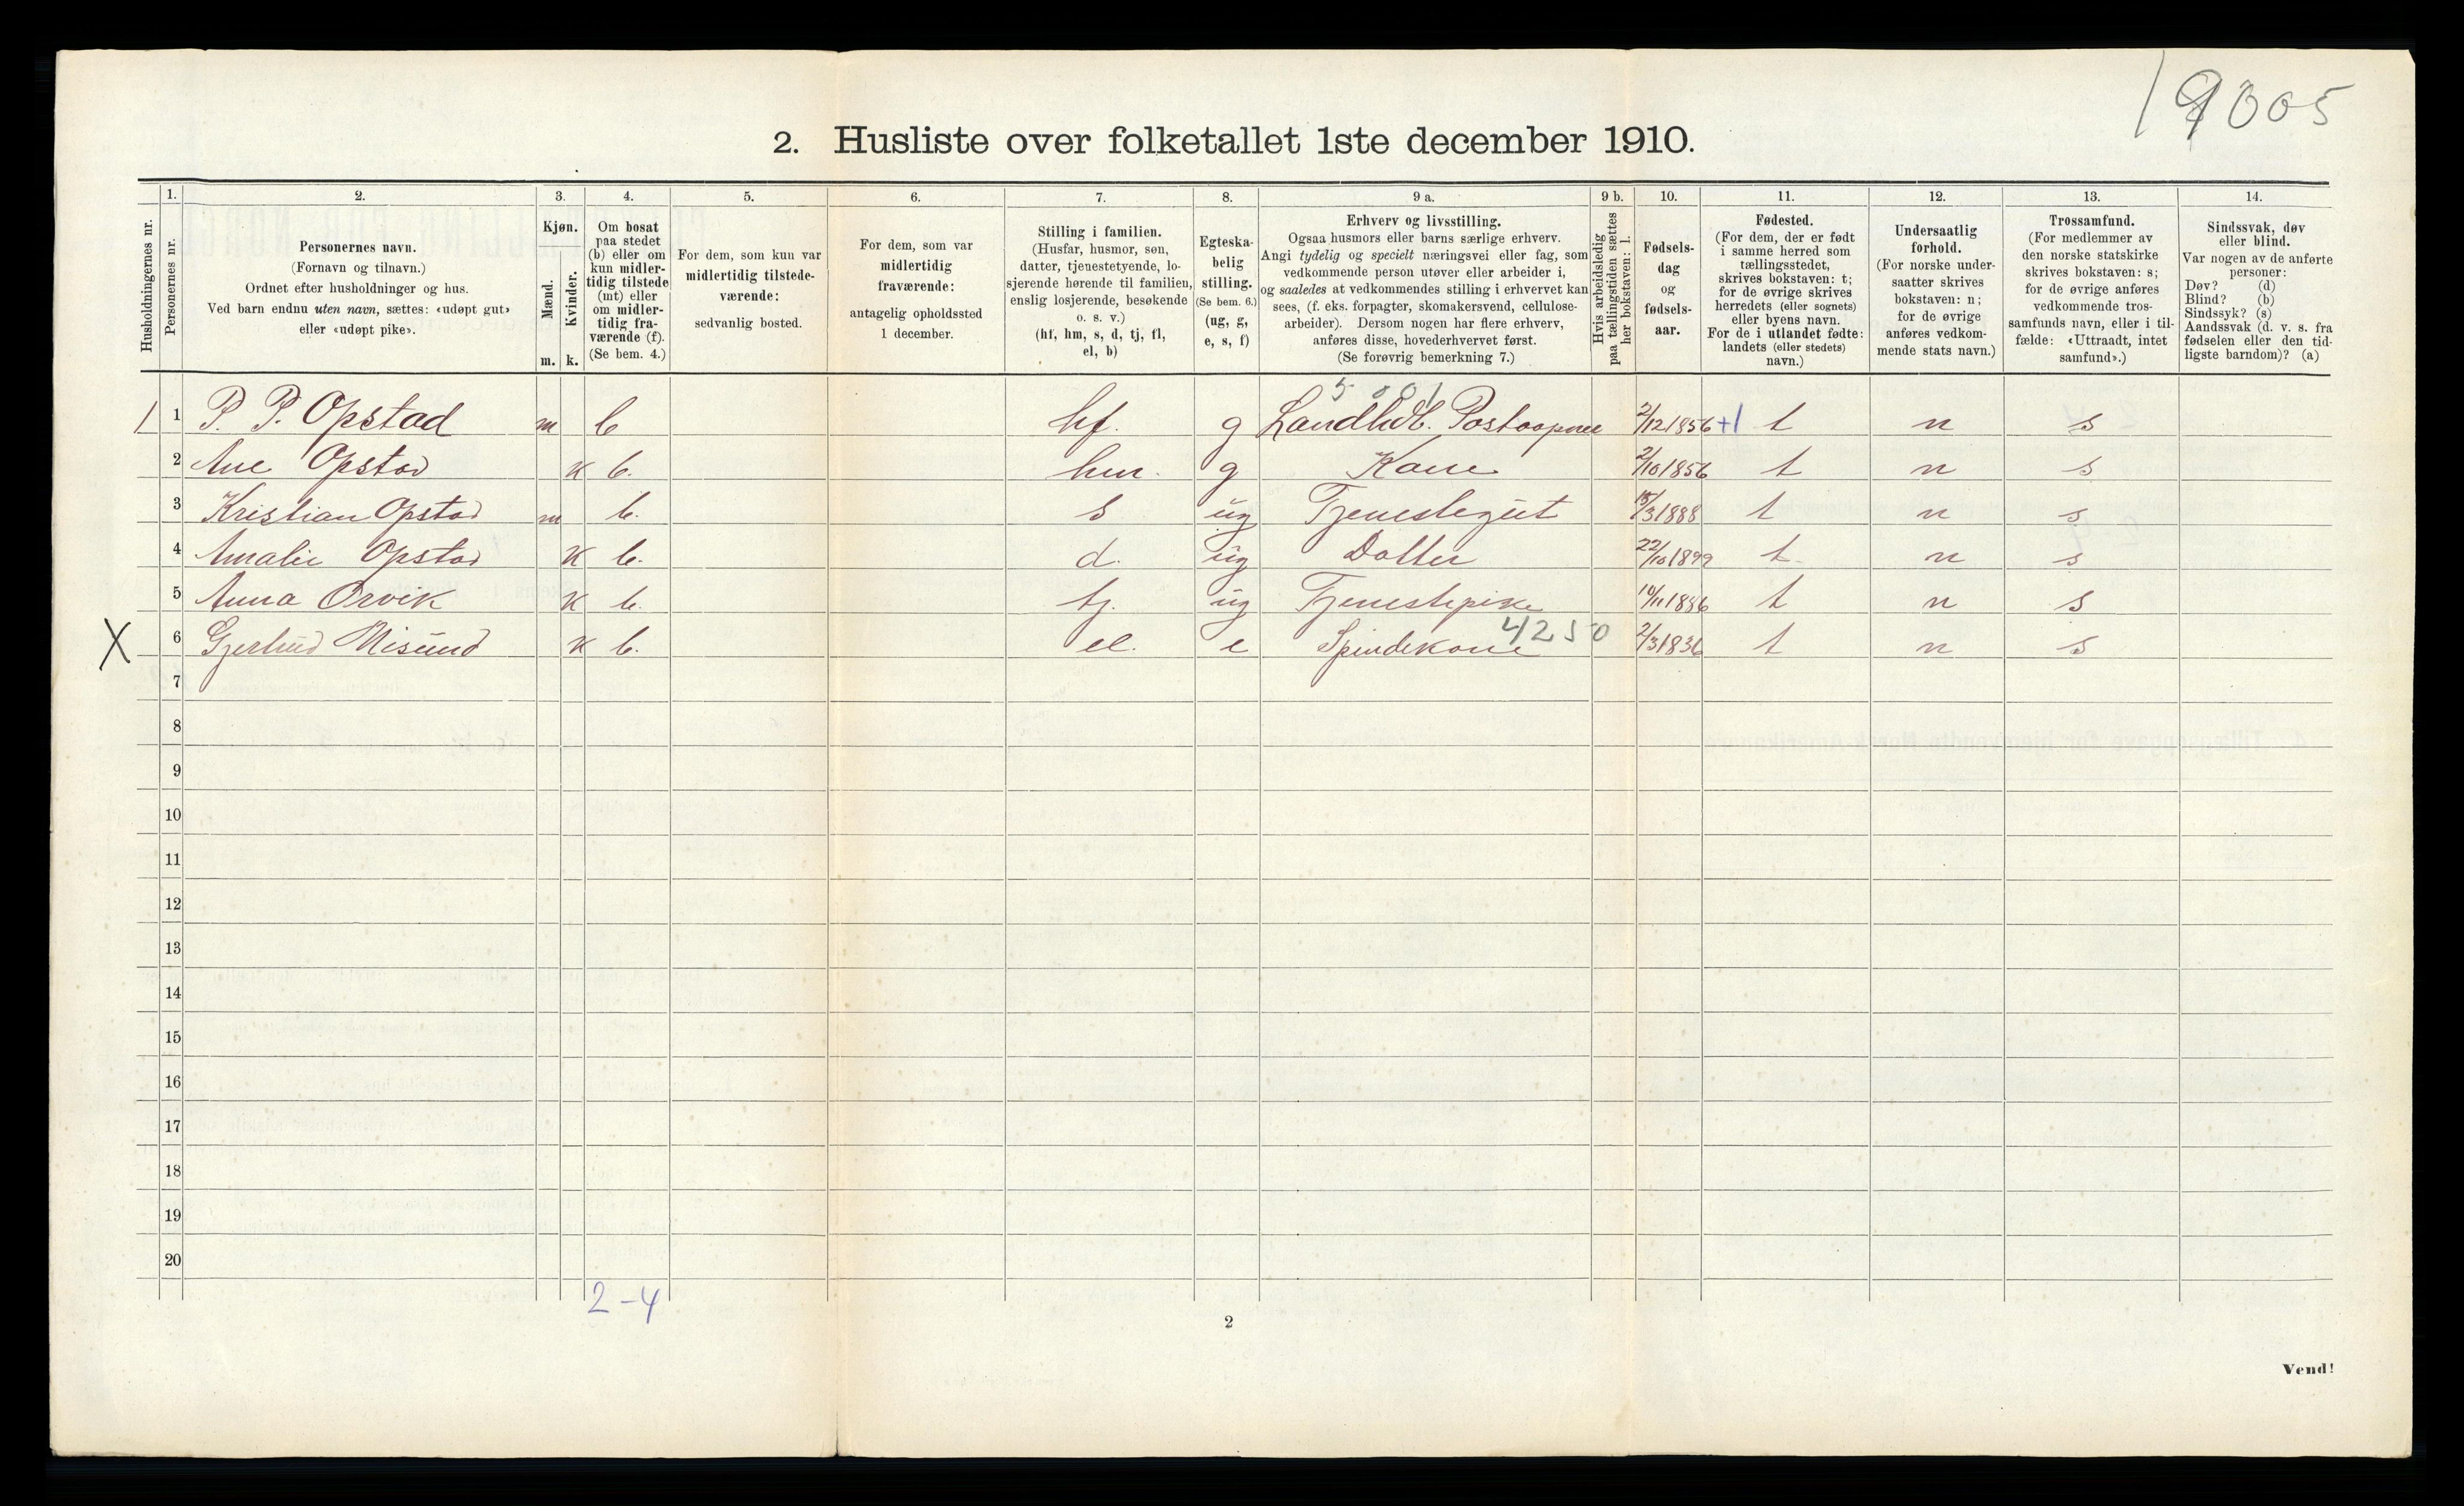 19005
2. Husliste over folketallet 1ste december 1910.
Husholdningernes nr.
1.
Personernes nr.
2.
Personernes navn.
(Fornavn og tilnavn.)
Ordnet efter husholdninger og hus.
Ved barn endnu uten navn, sættes: «udøpt gut»
eller «udøpt pike».
3.
Kjøn.
Mænd.
Kvinder.
m. k.
4.
Om bosat
paa stedet
(b) eller om
kun midler-
tidig tilstede
(mt) eller
om midler-
tidig fra-
værende (f).
(Se bem. 4.)
5.
For dem, som kun var
midlertidig tilstede-
værende:
sedvanlig bosted.
6.
For dem, som var
midlertidig
fraværende:
antagelig opholdssted
1 december.
7.
Stilling i familien.
(Husfar, husmor, søn,
datter, tjenestetyende, lo-
sjerende hørende til familien,
enslig losjerende, besøkende
o. s. v.)
(hf, hm, s, d, tj, fl,
el, b)
8.
Egteska-
belig
stilling.
(Se bem. 6.)
(ug, g,
e, s, f)
9 a.
Erhverv og livsstilling.
Ogsaa husmors eller barns særlige erhverv.
Angi tydelig og specielt næringsvei eller fag, som
vedkommende person utøver eller arbeider i,
og saaledes at vedkommendes stilling i erhvervet kan
sees, (f. eks. forpagter, skomakersvend, cellulose-
arbeider). Dersom nogen har flere erhverv,
anføres disse, hovederhvervet først.
(Se forøvrig bemerkning 7.)
9 b.
Hvis arbeidsledig
paa tællingstiden sættes
her bokstaven: l.
10.
Fødsels-
dag
og
fødsels-
aar.
11.
Fødested.
(For dem, der er født
i samme herred som
tællingsstedet,
skrives bokstaven: t;
for de øvrige skrives
herredets (eller sognets)
eller byens navn.
For de i utlandet fødte:
landets (eller stedets)
navn.)
12.
Undersaatlig
forhold.
(For norske under-
saatter skrives
bokstaven: n;
for de øvrige
anføres vedkom-
mende stats navn.)
13.
Trossamfund.
(For medlemmer av
den norske statskirke
skrives bokstaven: s;
for de øvrige anføres
vedkommende tros-
samfunds navn, eller i til-
fælde: «Uttraadt, intet
samfund».)
14.
Sindssvak, døv
eller blind.
Var nogen av de anførte
personer:
Døv? (d)
Blind? (b)
Sindssyk? (s)
Aandssvak (d. v. s. fra
fødselen eller den tid-
ligste barndom)? (a)
1 1 P. P. Opstad m b hf. g Landhdl. Postaapner 2/12 1856 +1 t n s
2 Ane Opstad k b. hm. g Kone 2/10 1856 t n s
3 Kristian Opstad m b. s ug Tjenestegut 15/3 1888 t n s
4 Amalie Opstad k b. d. ug Datter 22/10 1899 t n s
5 Anna Orvik k b. tj. ug Tjenestepike 10/11 1886 t n s
X 6 Gjertrud Misund k b. el. e Spindekone 4250 2/3 1836 t n s
7
8
9
10
11
12
13
14
15
16
17
18
19
20
2-4
2
Vend!